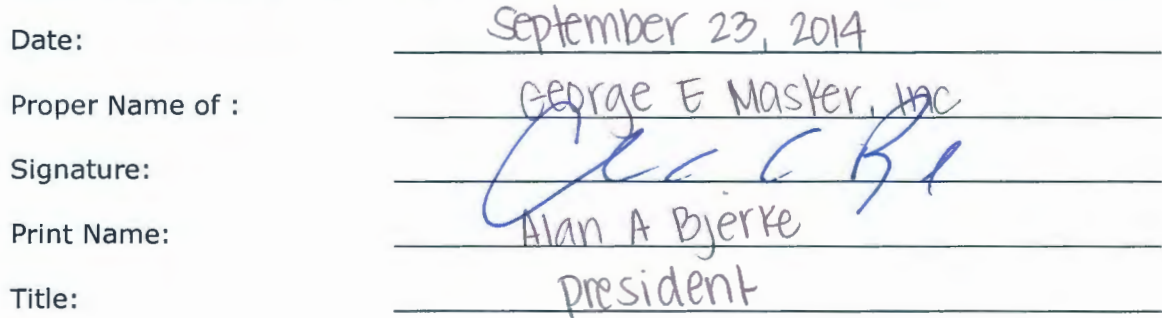 Date: September 23, 2014
Proper Name of : George E Masker, Inc
Signature:
Print Name: Alan A Bjerke
Title: president